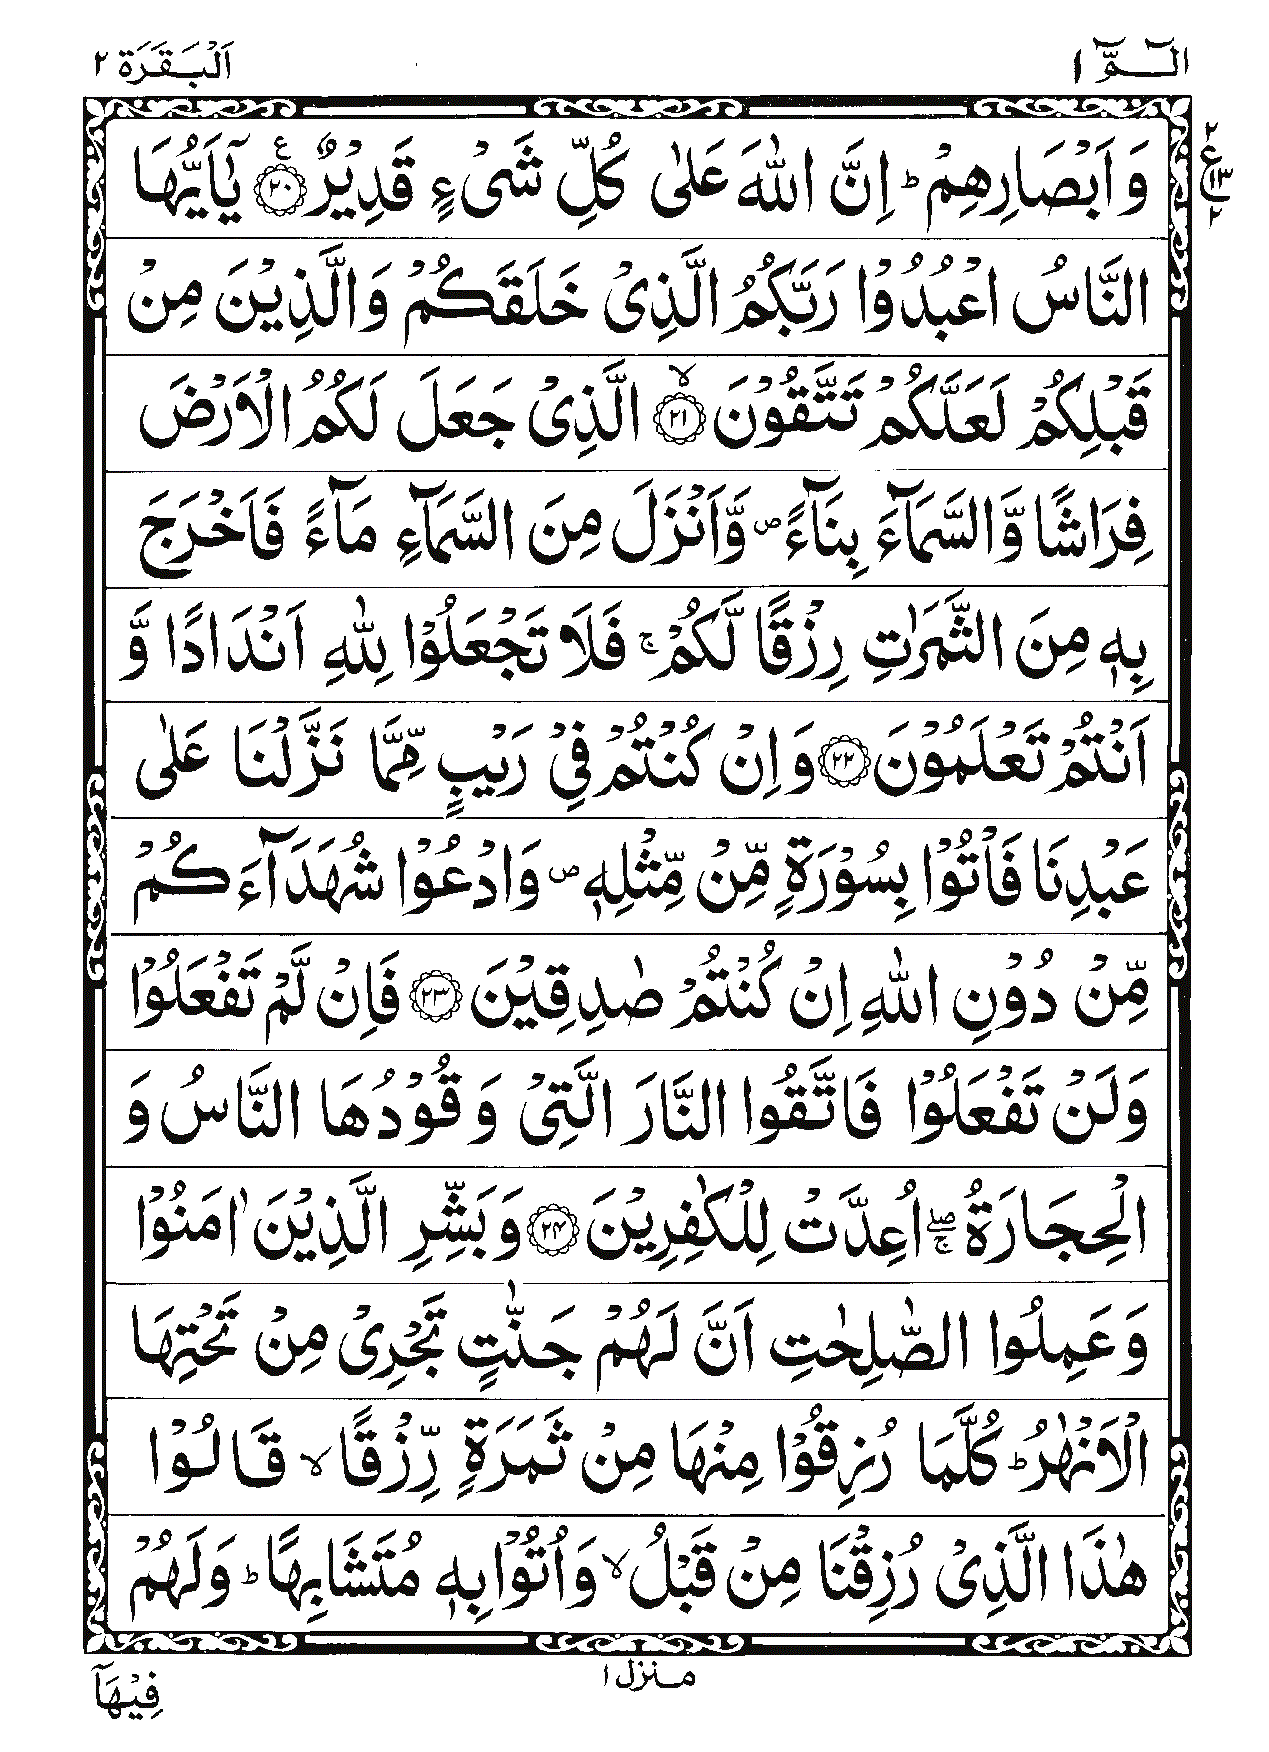 الٓـمّٓ ١
اَلْبَقَرَة ٢
٢
ع
١٣
٢
وَاَبْصَارِهِمْ ؕ اِنَّ اللّٰهَ عَلٰى كُلِّ شَىْءٍ قَدِيْرٌ ۧ ﴿٢٠﴾ يٰۤاَيُّهَا
النَّاسُ اعْبُدُوْا رَبَّكُمُ الَّذِىْ خَلَقَكُمْ وَالَّذِيْنَ مِنْ
قَبْلِكُمْ لَعَلَّكُمْ تَتَّقُوْنَ ۙ ﴿٢١﴾ الَّذِىْ جَعَلَ لَكُمُ الْاَرْضَ
فِرَاشًا وَّالسَّمَآءَ بِنَآءً ۪ وَّاَنْزَلَ مِنَ السَّمَآءِ مَآءً فَاَخْرَجَ
بِهٖ مِنَ الثَّمَرٰتِ رِزْقًا لَّكُمْ ۚ فَلَا تَجْعَلُوْا لِلّٰهِ اَنْدَادًا وَّ
اَنْتُمْ تَعْلَمُوْنَ ﴿٢٢﴾ وَاِنْ كُنْتُمْ فِىْ رَيْبٍ مِّمَّا نَزَّلْنَا عَلٰى
عَبْدِنَا فَاْتُوْا بِسُوْرَةٍ مِّنْ مِّثْلِهٖ ۪ وَادْعُوْا شُهَدَآءَكُمْ
مِّنْ دُوْنِ اللّٰهِ اِنْ كُنْتُمْ صٰدِقِيْنَ ﴿٢٣﴾ فَاِنْ لَّمْ تَفْعَلُوْا
وَلَنْ تَفْعَلُوْا فَاتَّقُوا النَّارَ الَّتِىْ وَقُوْدُهَا النَّاسُ وَ
الْحِجَارَةُ ۖۚ اُعِدَّتْ لِلْكٰفِرِيْنَ ﴿٢٤﴾ وَبَشِّرِ الَّذِيْنَ اٰمَنُوْا
وَعَمِلُوا الصّٰلِحٰتِ اَنَّ لَهُمْ جَنّٰتٍ تَجْرِىْ مِنْ تَحْتِهَا
الْاَنْهٰرُ ؕ كُلَّمَا رُزِقُوْا مِنْهَا مِنْ ثَمَرَةٍ رِّزْقًا ۙ قَالُوْا
هٰذَا الَّذِىْ رُزِقْنَا مِنْ قَبْلُ ۙ وَاُتُوْا بِهٖ مُتَشَابِهًا ؕ وَلَهُمْ
منزل ١
فِيْهَآ